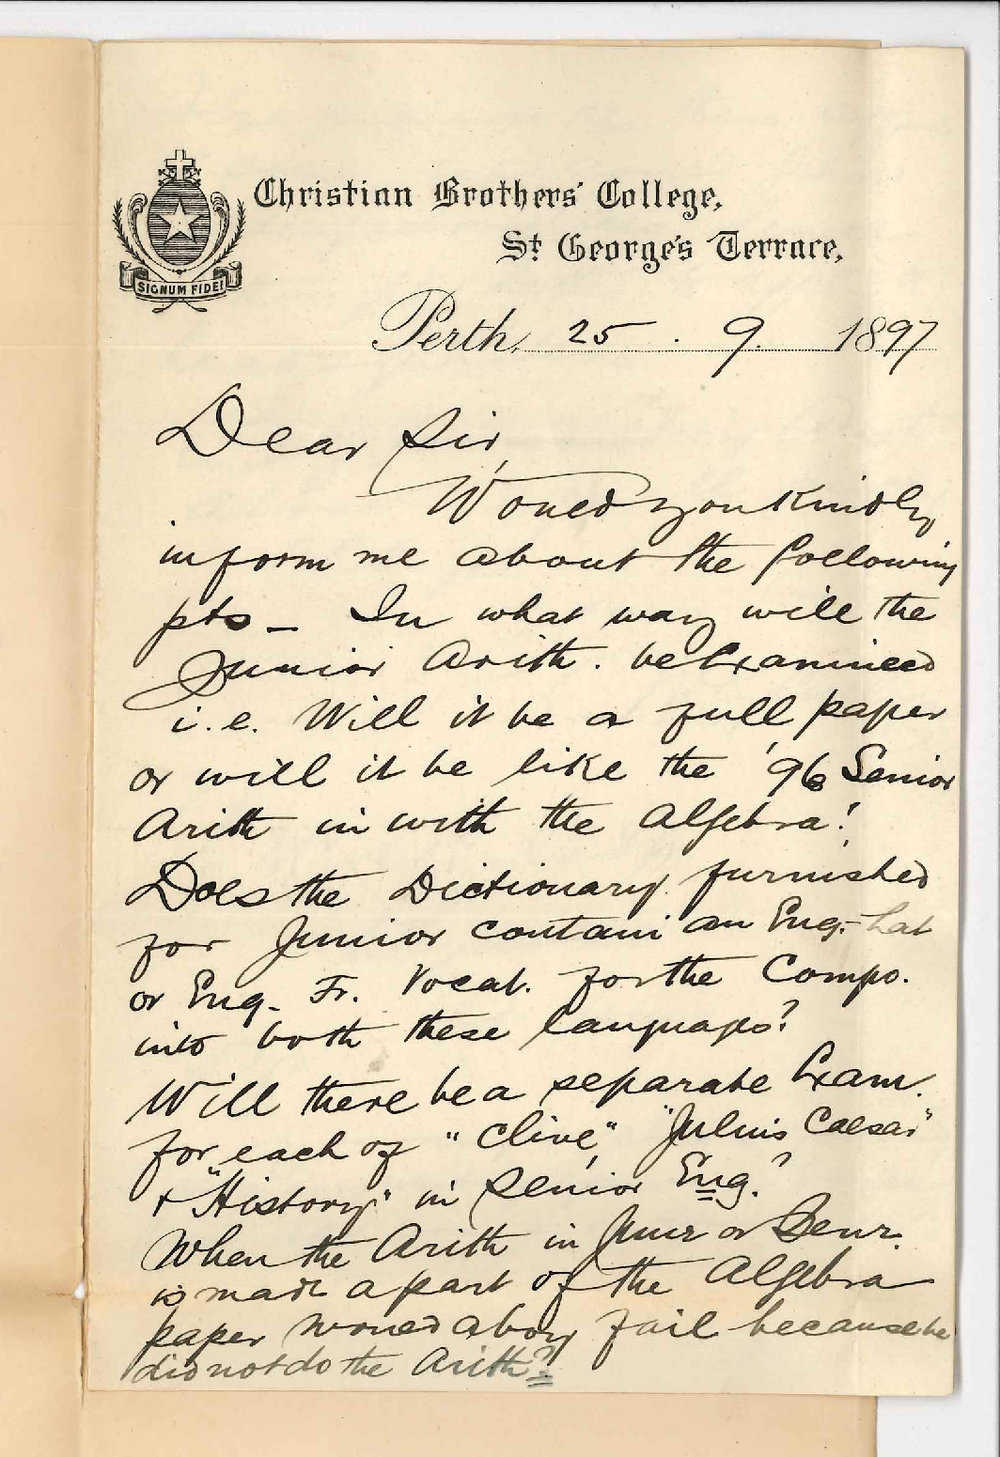 Christian Brothers' College,
St George's Terrace,
SIGNUM FIDEI
Perth, 25 . 9. 1897
Dear Sir,
Would you Kindly
inform me about the following
pts – In what way will the
Junior Arith. be Examined
i.e. Will it be a full paper
or will it be like the '96 Senior
Arith in with the Algebra?
Does the Dictionary furnished
for Junior contain an Eng.-Lat
or Eng- Fr. Vocab. for the Compo.
into both these languages?
Will there be a separate Exam.
for each of "Clive", "Julius Caesar"
+ "History" in Senior Eng?
When the Arith in Junr or Senr.
is made a part of the Algebra
paper would a boy fail because he
did not do the Arith?